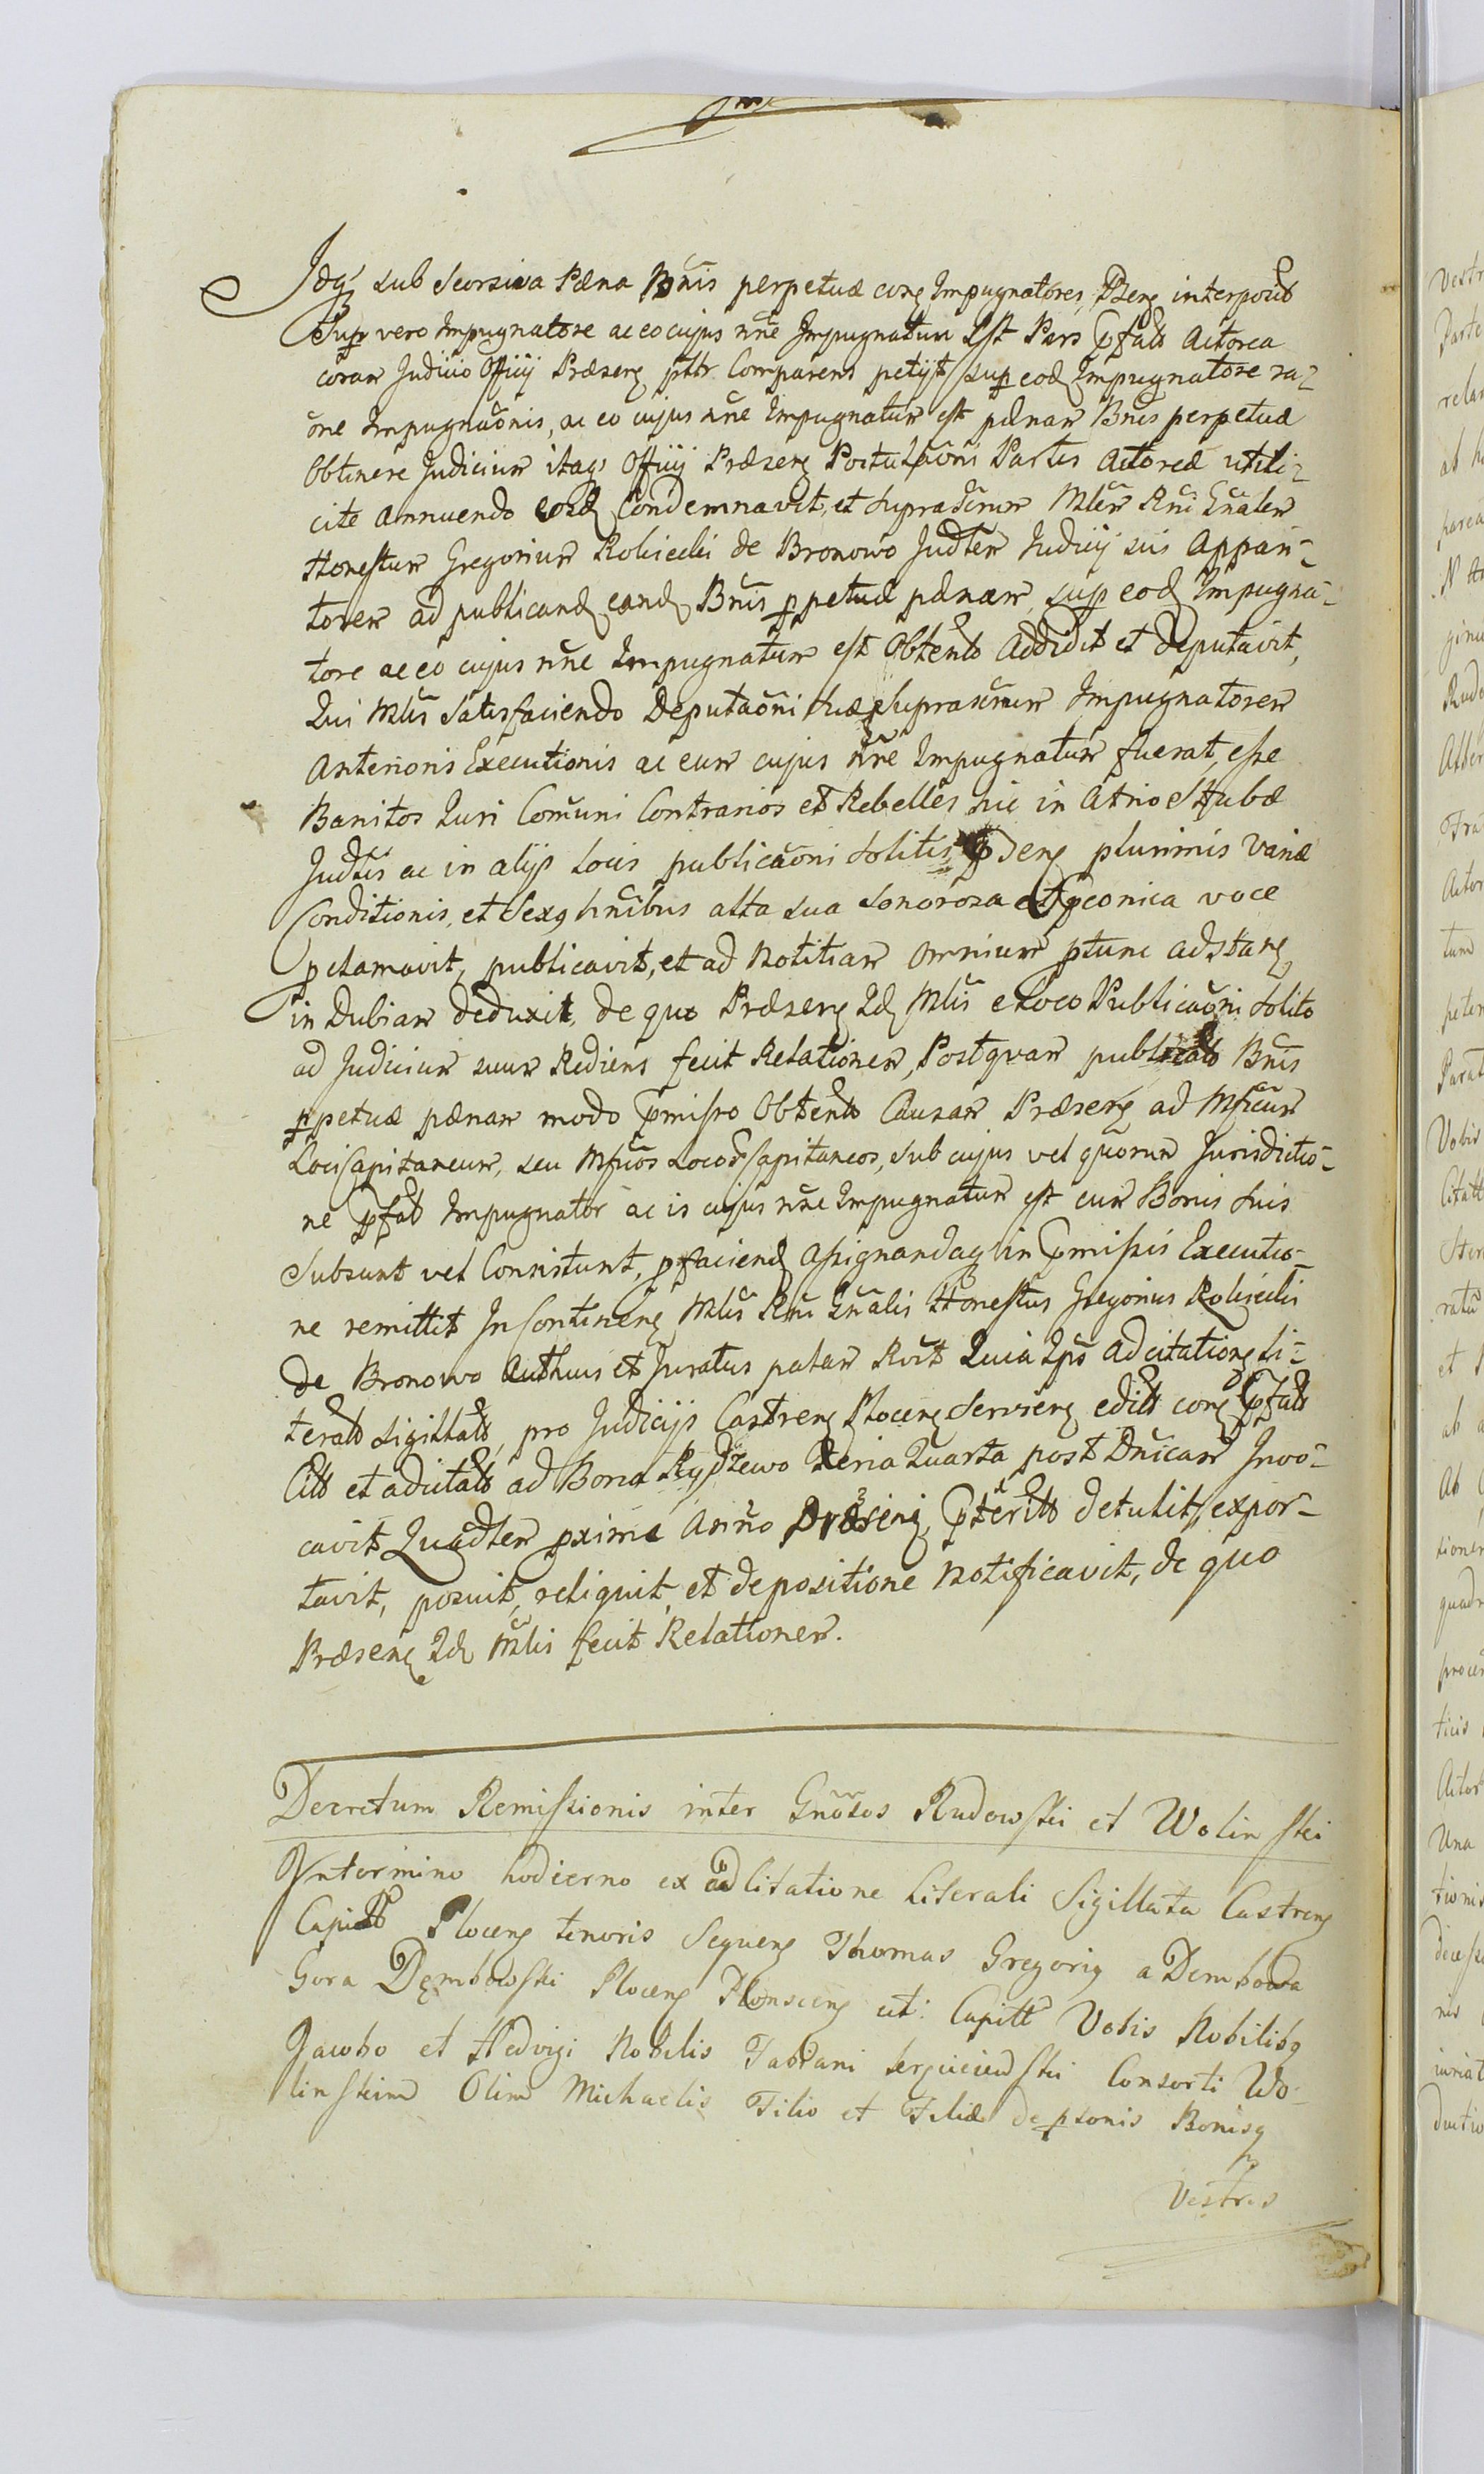 Idq sub seorsiva Pæna Bnis perpetuæ con Impugnatores, Psen interposit
Sup vero Impugnatore ac eo cujus nne Impugnatum Est Pars pfatt Actorea
coram Judicio Officij Præsen pttr Comparens petijt sup eod Impugnatore ra-
one Impugnaonis, ac eo cujus nne Impugnatum est pænam Bnis perpetuæ
Obtinere Judicium itaqs Officij Præsen Postulaoni Partis Actoreæ utili-
cite annuendo eosd Condemnavit, et suprascrum Mlem Rni Gnalem
Honestum Gregorium Roliccki de Bronowo Judtem Judicij sui Appari-
torem ad publicand eand Bnis ppetuæ pænam, sup eod Impugna-
tore ac eo cujus nne Impugnatum est Obtentt Addidit et Deputavit,
Qui Mlis satisfaciendo Deputaoni suæ suprascrum Impugnatorem
Anterioris Executionis ac eum cujus nne Impugnatum fuerat, esse
Banitos Juri Comuni Contrarios et Rebelles hic in Atrio Stubæ
Judtis ac in alijs locis publicaoni solitis, psen plurimis Variæ
Conditionis, et Sexq hnibus alta sua sonorosa et pconica voce
pclamavit, publicavit, et ad Notitiam omnium ptunc adstan
in Dubiam deduxit, de quo Præsen Id Mlis e Loco Publicaoni solito
ad Judicium suum Rediens fecit Relationem, Postquam publicatt Bnis
ppetuæ pænam modo pmisso Obtentt Causam Præsen ad Mficum
Loci Capitaneum, seu Mficos Locor Capitaneos, sub cujus vel quorum Jurisdictio-
ne pfatt Impugnator ac is cujus nne Impugnatum est cum Bonis suis
Subsunt vel Consistunt, pfaciend Assignandaq in pmissis Executio-
ne remittit In Continen Mlis Rni Gnalis Honestus Gregorius Rolicchi
de Bronowo Authcus et Juratus palam Rcit Quia Ips ad citation li-
teratt sigillatt, pro Judicijs Castren Plocen Servien editt con pfatt
Citt et adcitatt ad Bona Rydzewo Feria Quarta post Dnicam Invo-
cavit Quadlem pxime Anno Præsen, pteritt detulit, expor-
tavit, posuit, reliquit, et de positione Notificavit, de quo
Præsen Id Mlis fecit Relationem.
Decretum Remissionis inter Gnosos Rudowski et Wolinski
In termino hodierno ex adlitatione Literali Sigillata Castren
Capitt Plocen tenoris Sequen Thomas Gregoriq a Dembowa
Gora Dembowski Plocen Plonscen ett: Capitt Vobis Nobilibq
Jacobo et Hedvigi Nobilis Fabiani Consorti Wo-
linskim Olim Michaelis Filio et Filiæ de psonis Bonisq
Vestris